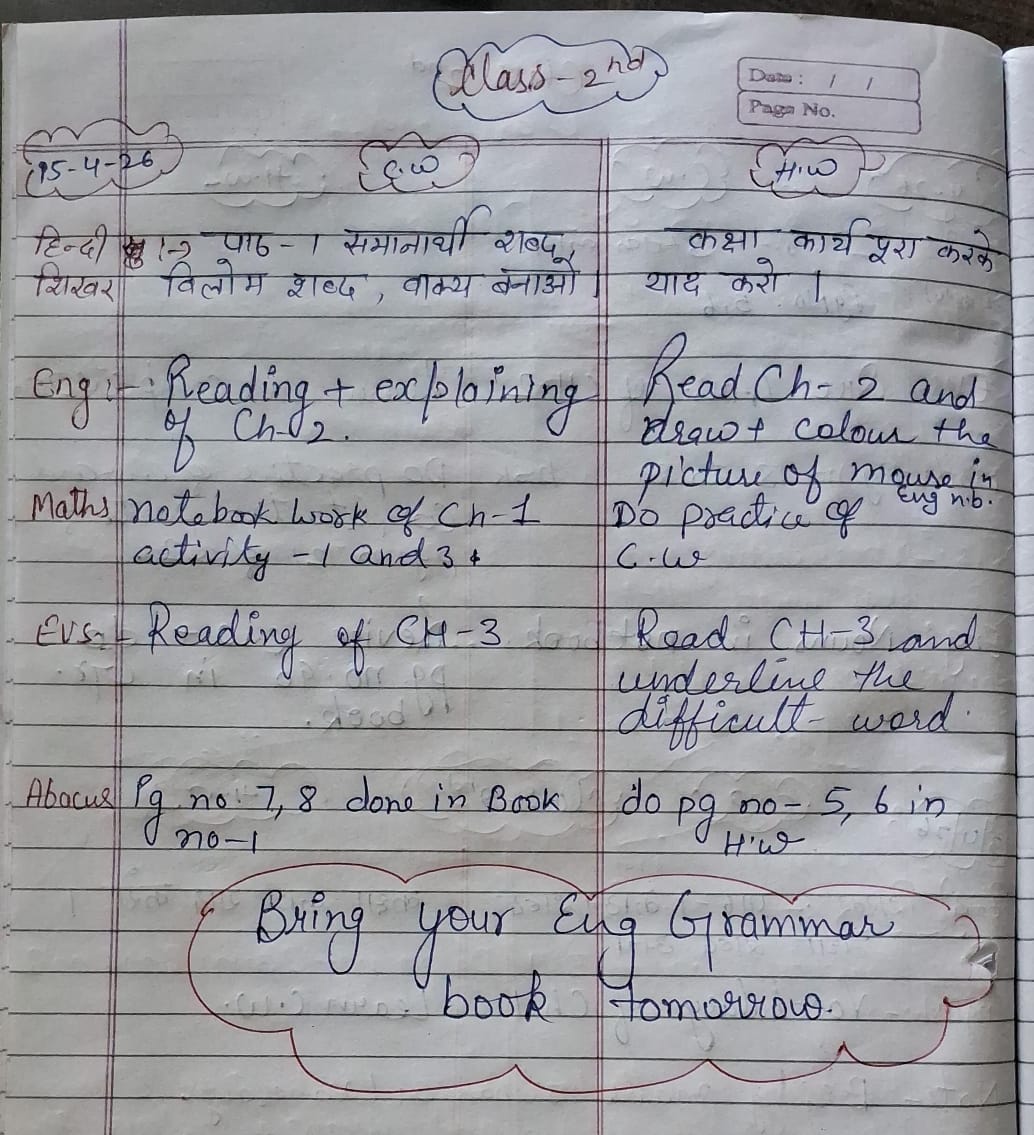 Class - 2nd
Date: / /
Page No.
15-4-26
C.W
H.W
हिन्दी 1-> पाठ - 1 समानार्थी शब्द,
शिखर विलोम शब्द, वाक्य बनाओ।
कक्षा कार्य पूरा करके
याद करो।
Eng :- Reading + explaining
of Ch-2.
Read Ch- 2 and
draw + colour the
picture of mouse in
Eng n.b.
Maths notebook work of Ch-1
activity - 1 and 3
Do practice of
C.W
EVS - Reading of CH-3
Read CH-3 and
underline the
difficult word.
Abacus Pg no. 7, 8 done in Book
no-1
do pg no- 5, 6 in
H.W
Bring your Eng Grammar
book tomorrow.